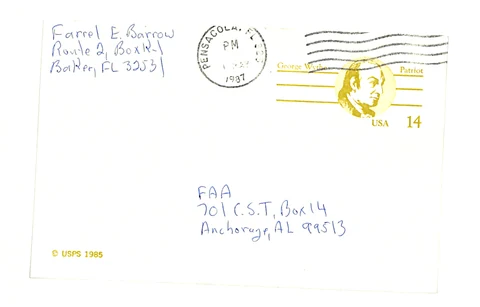 Farrel E. Barrow
Route 2, Box K-1
Baker, FL 32531
PENSACOLA, FL
PM
1987
George Wythe
Patriot
USA 14
FAA
701 C.S.T, Box 14
Anchorage, AL 99513
© USPS 1985